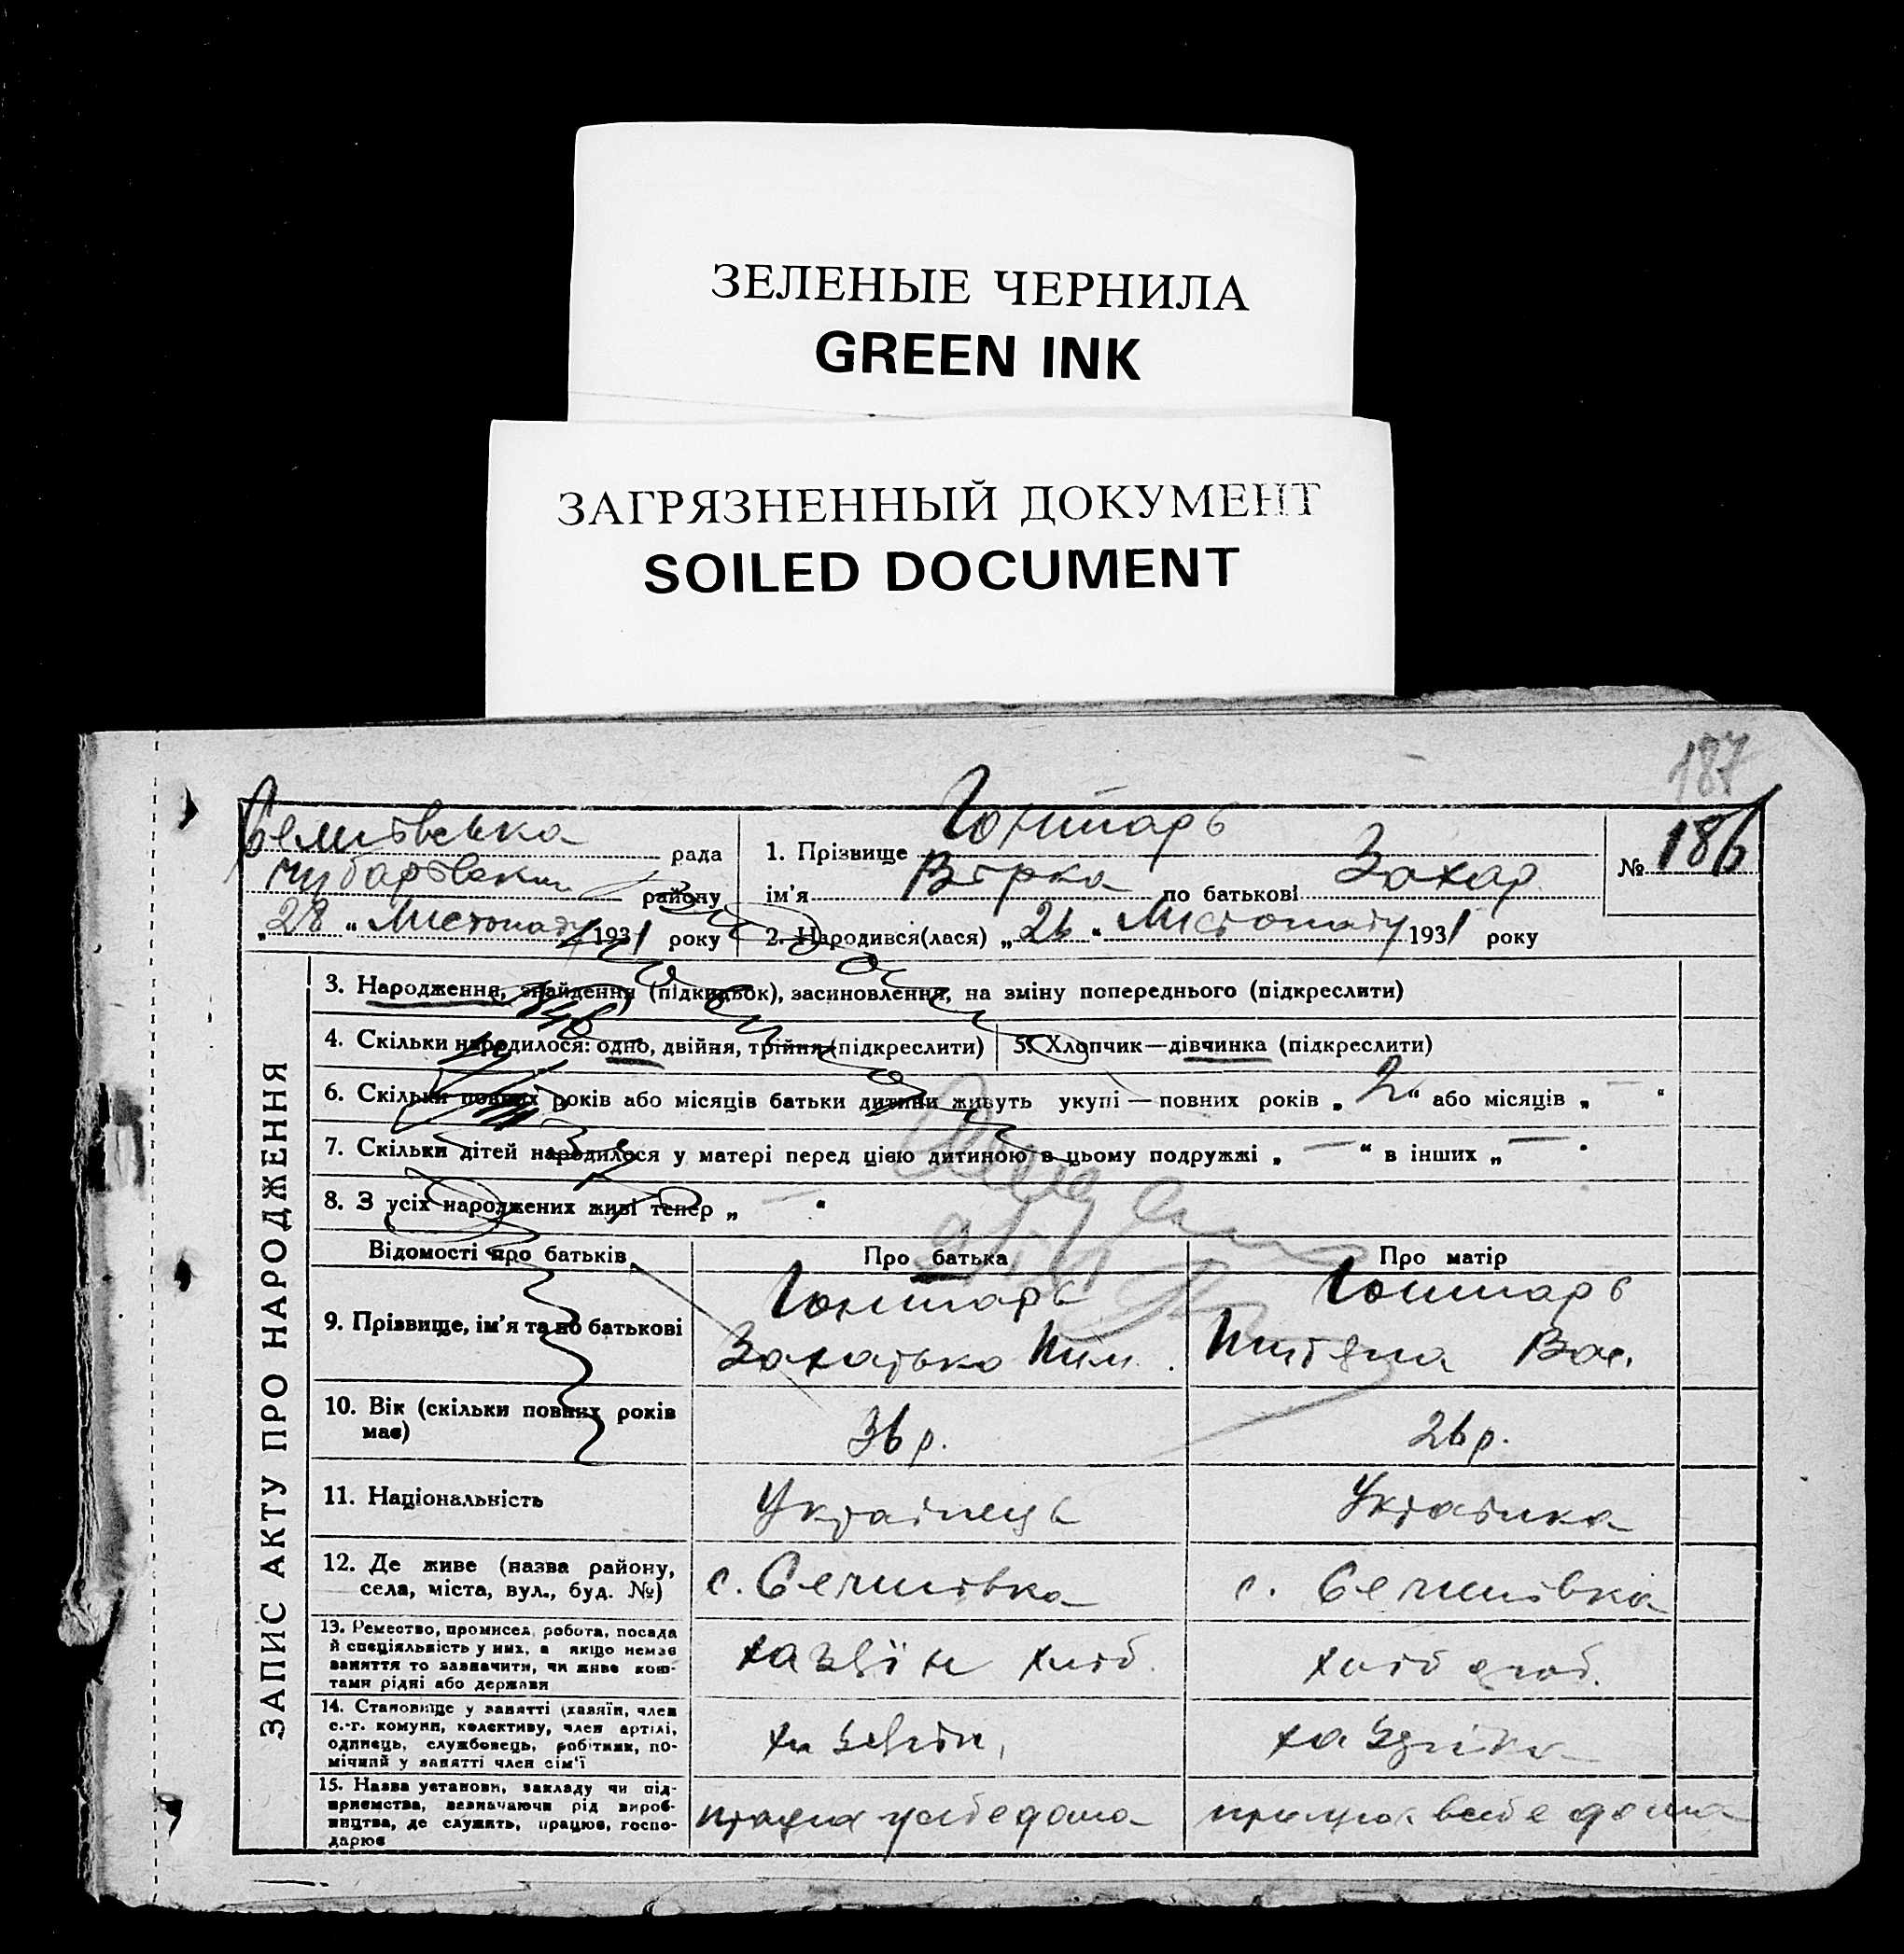 ЗЕЛЕНЫЕ ЧЕРНИЛА
GREEN INK
ЗАГРЯЗНЕННЫЙ ДОКУМЕНТ
SOILED DOCUMENT
187
ЗАПИС АКТУ ПРО НАРОДЖЕННЯ
рада
району
„28“ Листопаду 1931 року
1. Прізвище Гончарь
ім'я Вірка по батькові Захар
№ 186
2. Народився(лася) „26“ Листопаду 1931 року
3. Народження, знайдення (підкидьок), засиновлення, на зміну попереднього (підкреслити)
4. Скільки народилося: одно, двійня, трійня (підкреслити)
5. Хлопчик—дівчинка (підкреслити)
6. Скільки повних років або місяців батьки дитини живуть укупі — повних років „2“ або місяців „—“
7. Скільки дітей народилося у матері перед цією дитиною в цьому подружжі „—“ в інших „—“
8. З усіх народжених живі тепер „—“
Відомості про батьків
Про батька
Про матір
9. Прізвище, ім'я та по батькові
Гончарь
Гончарь
Вас.
10. Вік (скільки повних років має)
36 р.
26 р.
11. Національність
Українець
Українка
12. Де живе (назва району,
села, міста, вул., буд. №)
13. Ремество, промисел, робота, посада
й спеціяльність у них, а якщо немає
заняття то зазначити, чи живе кош-
тами рідні або держави
хазяїн хліб.
хлібороб.
14. Становище у занятті (хазяїн, член
с.-г. комуни, колективу, член артілі,
одинець, службовець, робітник, по-
мічний у занятті член сім'ї
хазяїн
хазяйка
15. Назва установи, закладу чи під-
приємства, зазначаючи рід вироб-
ництва, де служить, працює, госпо-
дарює